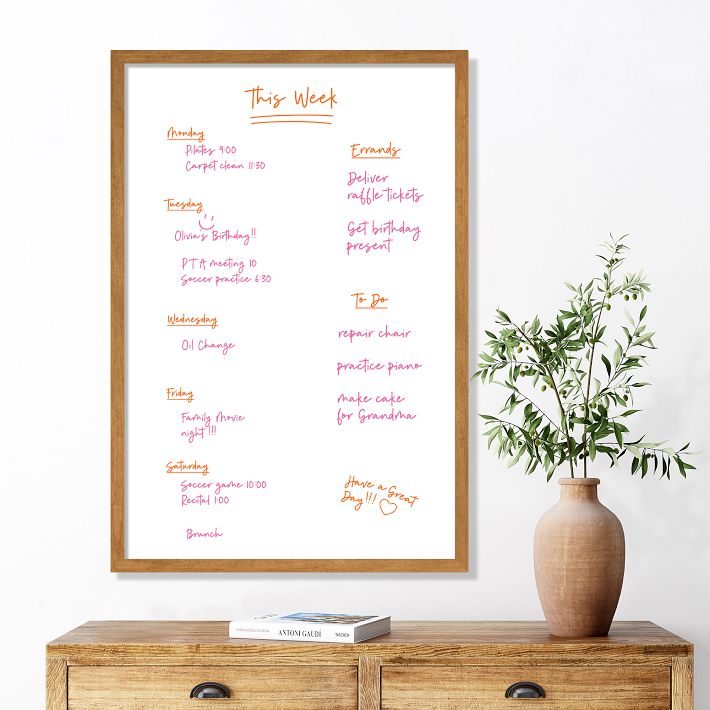 This Week
Monday
Pilates 9:00
Carpet clean 11:30
Tuesday
Olivia's Birthday!!
PTA meeting 10
Soccer practice 6:30
Wednesday
Oil Change
Friday
Family Movie
night!!!
Saturday
Soccer game 10:00
Recital 1:00
Brunch
Errands
Deliver
raffle tickets
Get birthday
present
To Do
repair chair
practice piano
make cake
for Grandma
Have a Great
Day!!!
ANTONI GAUDÍ
TASCHEN